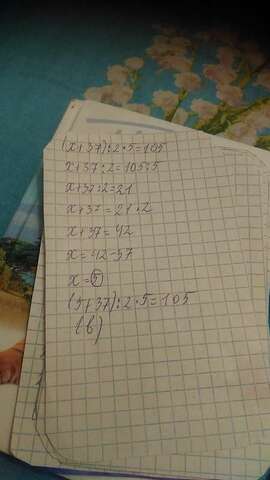 (x+37):2·5=105
x+37:2=105:5
x+37:2=21
x+37=21·2
x+37=42
x=42-37
x=5
(5+37):2·5=105
(в)